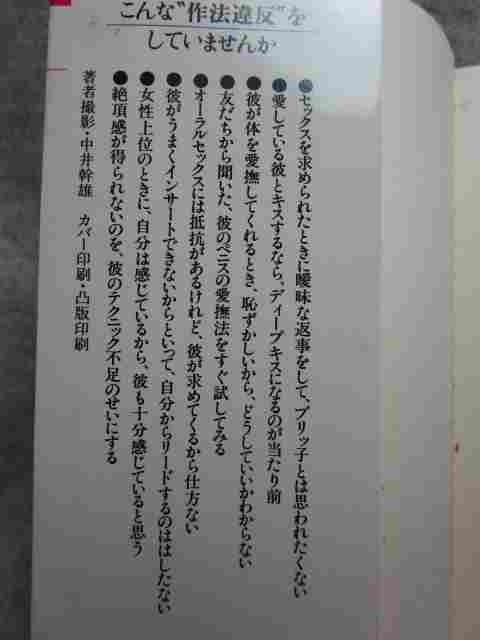 こんな〝作法違反〟を
していませんか
●セックスを求められたときに曖昧な返事をして、ブリッ子とは思われたくない
●愛している彼とキスするなら、ディープキスになるのが当たり前
●彼が体を愛撫してくれるとき、恥ずかしいから、どうしていいかわからない
●友だちから聞いた、彼のペニスの愛撫法をすぐ試してみる
●オーラルセックスには抵抗があるけれど、彼が求めてくるから仕方ない
●彼がうまくインサートできないからといって、自分からリードするのははしたない
●女性上位のときに、自分は感じているから、彼も十分感じていると思う
●絶頂感が得られないのを、彼のテクニック不足のせいにする
著者撮影・中井幹雄 カバー印刷・凸版印刷